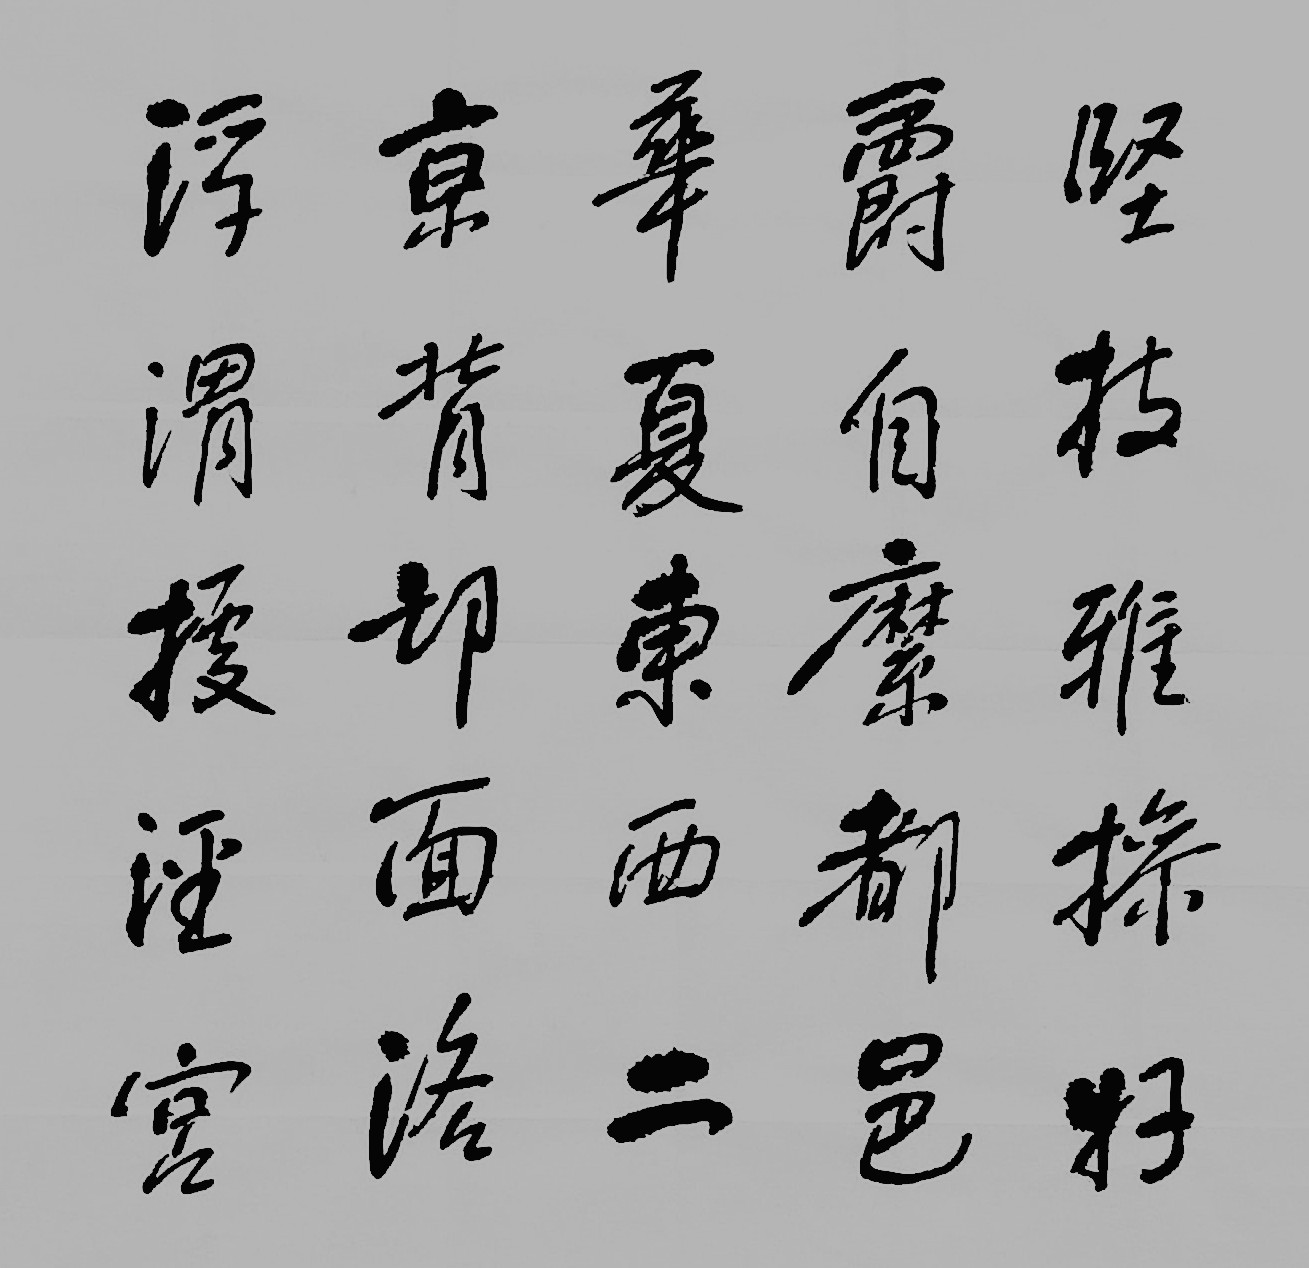 堅持雅操好
爵自縻都邑
華夏東西二
京背邙面洛
浮渭據涇宮